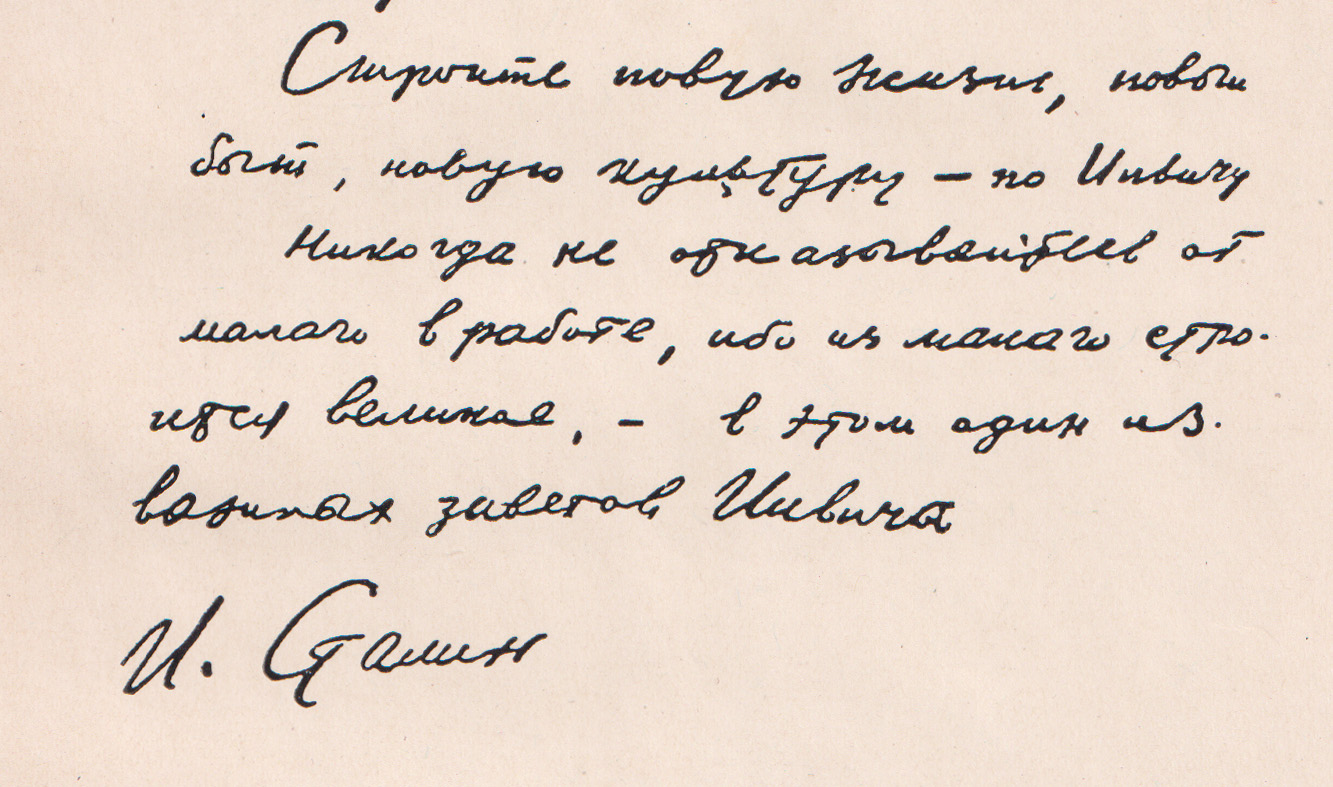 Стройте новую жизнь, новый
быт, новую культуру – по Ильичу
Никогда не отказывайтесь от
малаго в работе, ибо из малаго стро-
ится великое, – в этом один из
важных заветов Ильича
И. Сталин